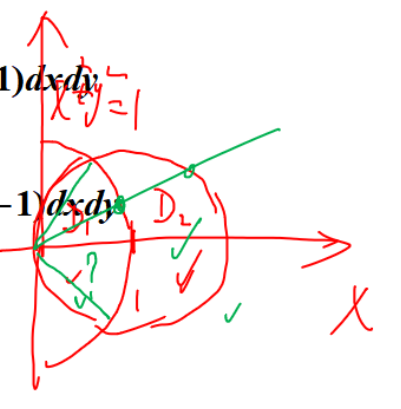 1)dxdy
x²+y²=1
-1)dxdy
D₁
D₂
?
1
X